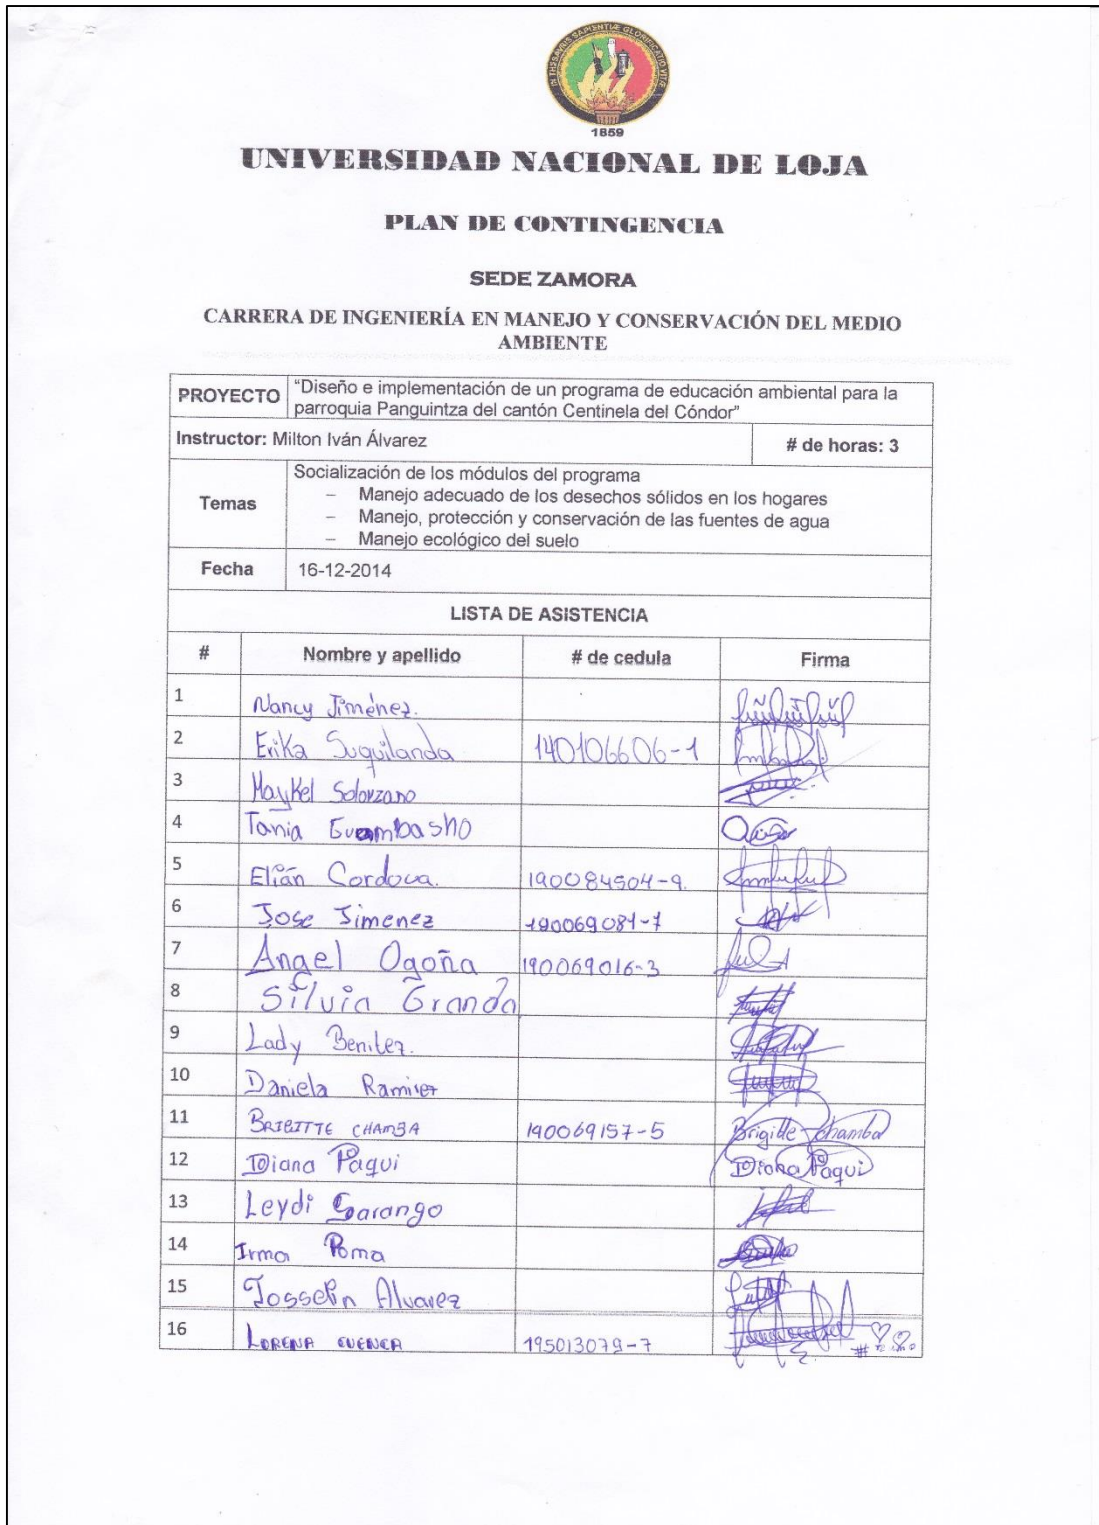 IN THESAVRIS SAPIENTIÆ GLORIFICATIO VITÆ
1859
UNIVERSIDAD NACIONAL DE LOJA
PLAN DE CONTINGENCIA
SEDE ZAMORA
CARRERA DE INGENIERÍA EN MANEJO Y CONSERVACIÓN DEL MEDIO
AMBIENTE
PROYECTO "Diseño e implementación de un programa de educación ambiental para la
parroquia Panguintza del cantón Centinela del Cóndor"
Instructor: Milton Iván Álvarez # de horas: 3
Temas Socialización de los módulos del programa
– Manejo adecuado de los desechos sólidos en los hogares
– Manejo, protección y conservación de las fuentes de agua
– Manejo ecológico del suelo
Fecha 16-12-2014
LISTA DE ASISTENCIA
# Nombre y apellido # de cedula Firma
1 Nancy Jiménez.
2 Erika Suquilanda 140106606-1
3 Maykel Solorzano
4 Tania Guambasho
5 Elián Cordova. 190084504-9.
6 Jose Jimenez 190069081-7
7 Angel Ogoña 190069016-3
8 Silvia Granda
9 Lady Benitez.
10 Daniela Ramirez
11 BRIGITTE CHAMBA 190069157-5 Brigitte Chamba
12 Diana Paqui Diana Paqui
13 Leydi Sarango
14 Irma Poma
15 Josselin Alvarez
16 LORENA CUENCA 195013079-7